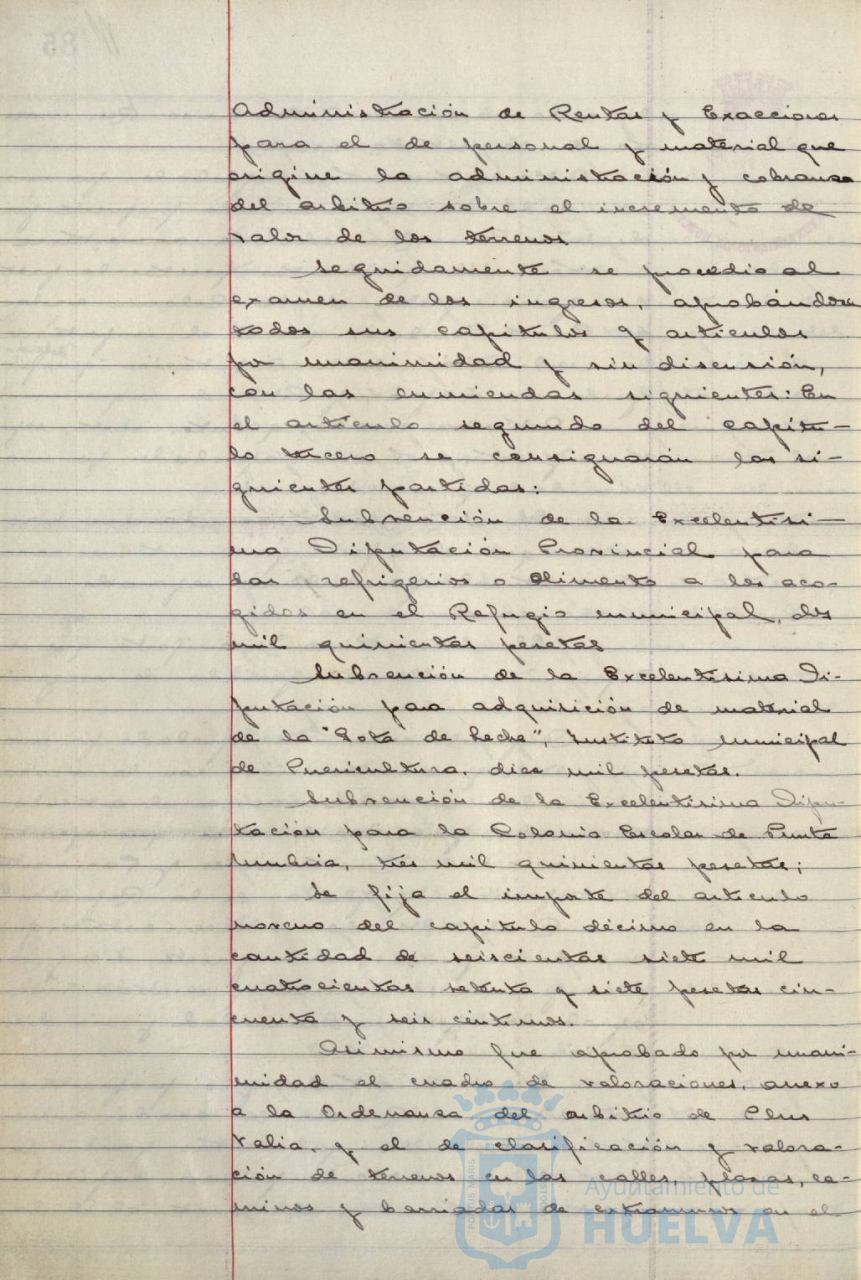 Administración de Rentas y Exacciones
para el de personal y material que
origine la administración y cobranza
del arbitrio sobre el incremento de
valor de los terrenos
Seguidamente se procedió al
examen de los ingresos, aprobándose
todos sus capítulos y artículos
por unanimidad y sin discusión,
con las enmiendas siguientes: En
el artículo segundo del capítu-
lo tercero se consignarán las si-
guientes partidas:
Subvención de la Excelentísi-
ma Diputación Provincial para
dar refrigerios o alimento a los aco-
gidos en el Refugio municipal, dos
mil quinientas pesetas
Subvención de la Excelentísima Di-
putación para adquisición de material
de la "Gota de Leche", Instituto municipal
de Puericultura, diez mil pesetas.
Subvención de la Excelentísima Dipu-
tación para la Colonia Escolar de Punta
Umbria, tres mil quinientas pesetas;
Se fija el importe del artículo
noveno del capítulo décimo en la
cantidad de seiscientas siete mil
cuatrocientas setenta y siete pesetas cin-
cuenta y seis céntimos.
Asimismo fue aprobado por unani-
midad el cuadro de valoraciones, anexo
a la Ordenanza del arbitrio de Plus
Valia, y el de clasificación y valora-
ción de terrenos en las calles, plazas, ca-
minos y barriadas de extramuros en el
Ayuntamiento de
HUELVA